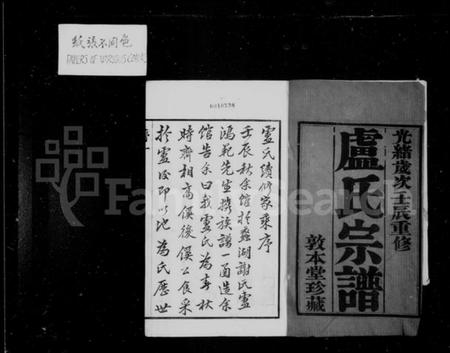 紙張不同色
PAPERS OF VARIOUS COLORS
光緒歲次壬辰重修
盧氏宗譜
敦本堂珍藏
盧氏續修家乘序
壬辰秋余館於蠡湖謝氏盧
鴻範先生携族譜一函造余
館告余曰我盧氏為春秋
時齊相高傒後傒公食采
於盧後即以地為氏歷世
FamilySearch